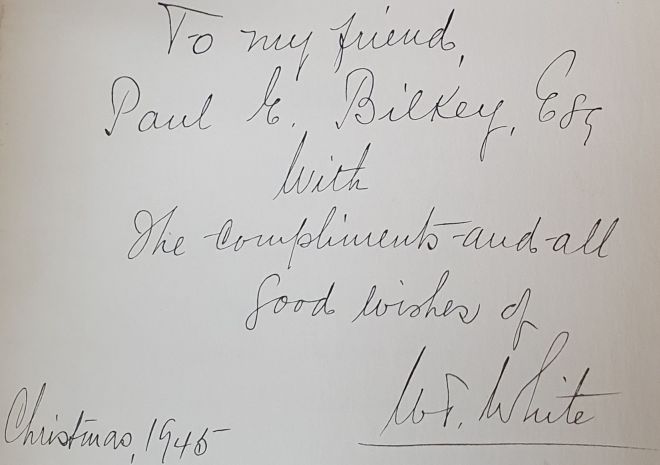 To my friend,
Paul E. Bilkey, Esq
With
The compliments and all
good wishes of
W.F. White
Christmas, 1945